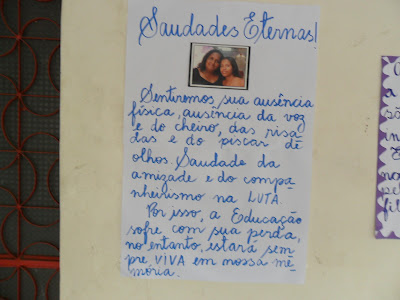 Saudades Eternas!
Sentiremos sua ausência
física, ausência da voz
e do cheiro, das risa
das e do piscar de
olhos. Saudade da
amizade e do compa
nheirismo na LUTA.
Por isso, a Educação
sofre com sua perda,
no entanto, estará sem
pre VIVA em nossa mê
mória.